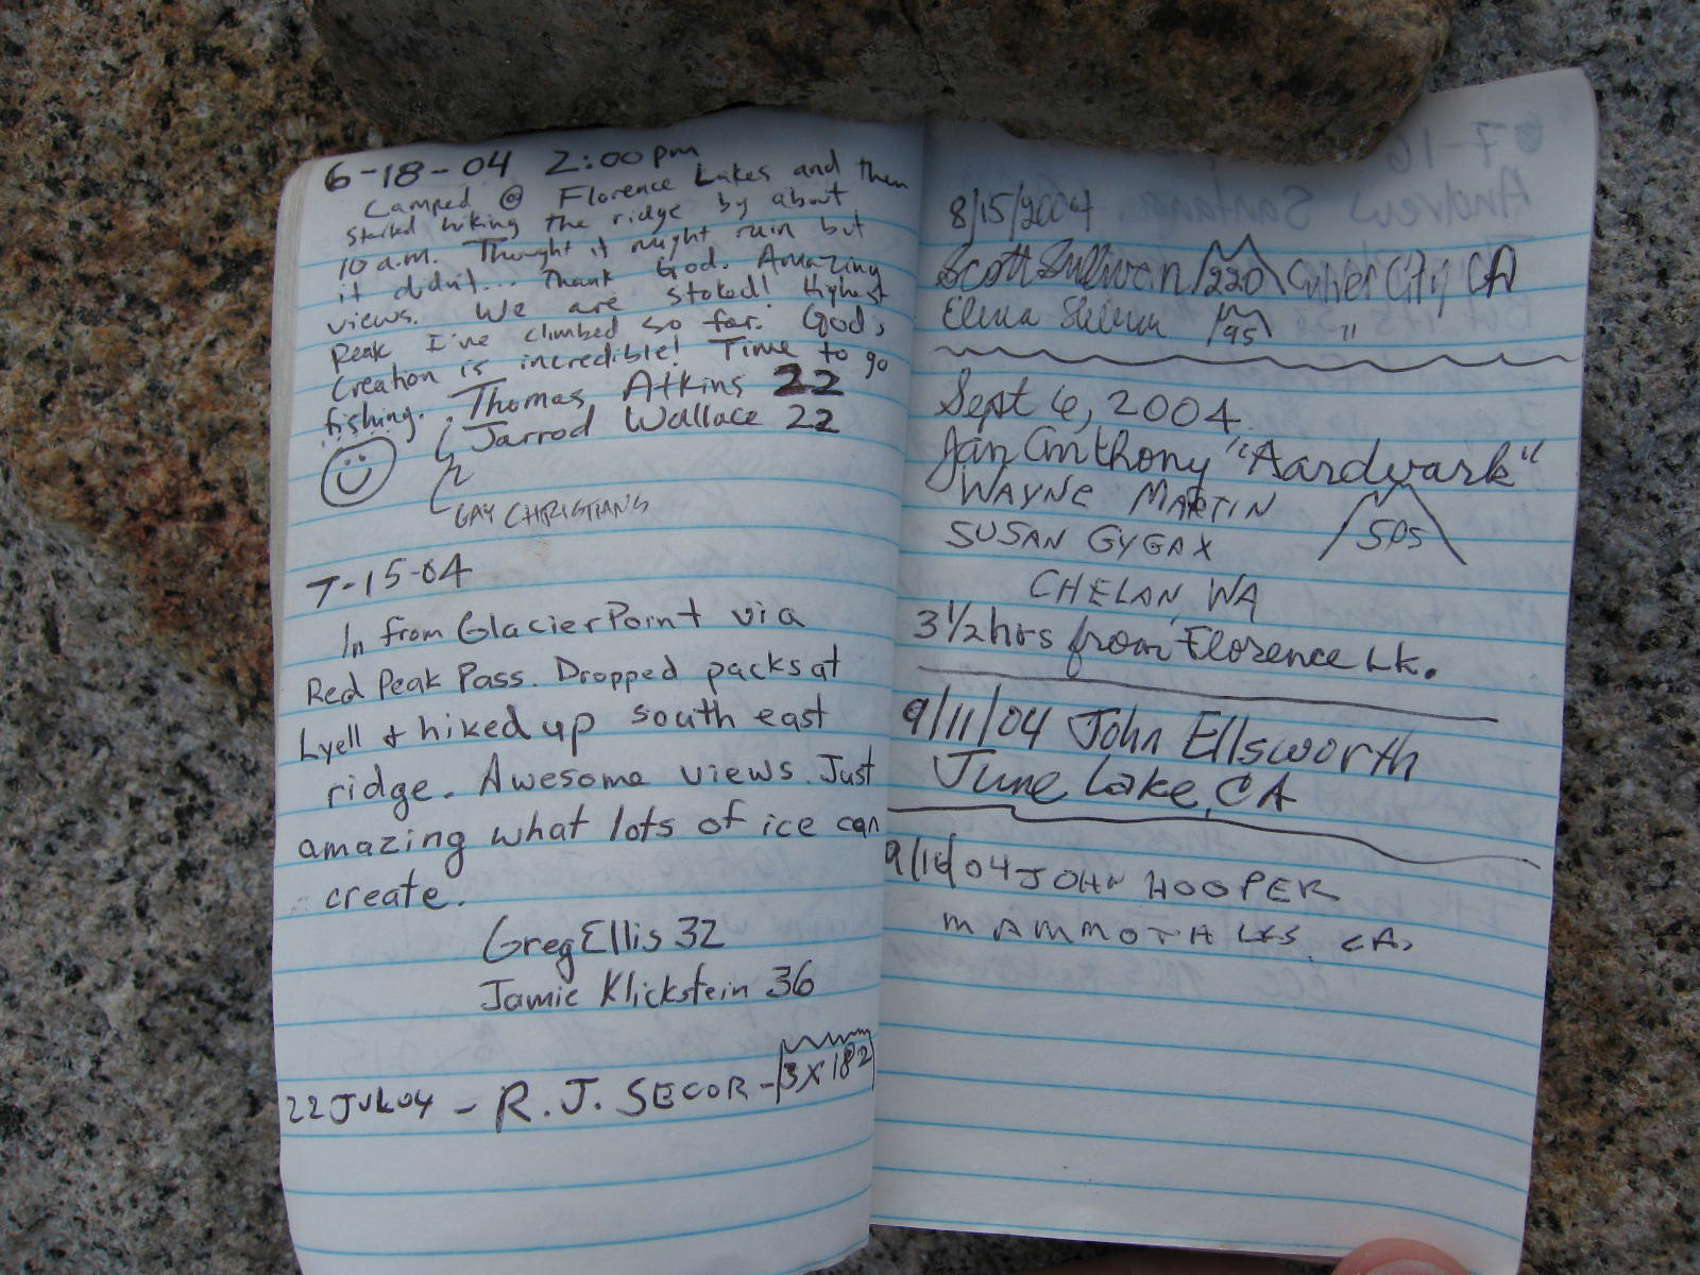 6-18-04 2:00pm
Camped @ Florence Lakes and then
started hiking the ridge by about
10 a.m. Thought it might rain but
it didn't... Thank God. Amazing
views. We are stoked! Highest
Peak I've climbed so far. God's
Creation is incredible! Time to go
fishing. Thomas Atkins 22
Jarrod Wallace 22
GAY CHRISTIANS
7-15-04
In from Glacier Point via
Red Peak Pass. Dropped packs at
Lyell & hiked up south east
ridge. Awesome views. Just
amazing what lots of ice can
create.
Greg Ellis 32
Jamie Klickstein 36
22 JUL 04 - R.J. SECOR - 3X182
07-16
Andrew Santana
8/15/2004
Scott Sullivan 220 Culver City CA
Elena 95 "
Sept 6, 2004
Jan Anthony "Aardvark"
WAYNE MARTIN
SUSAN GYGAX SPS
CHELAN, WA
3 1/2 hrs from Florence Lk.
9/11/04 John Ellsworth
June Lake, CA
9/16/04 JOHN HOOPER
MAMMOTH LKS CA.